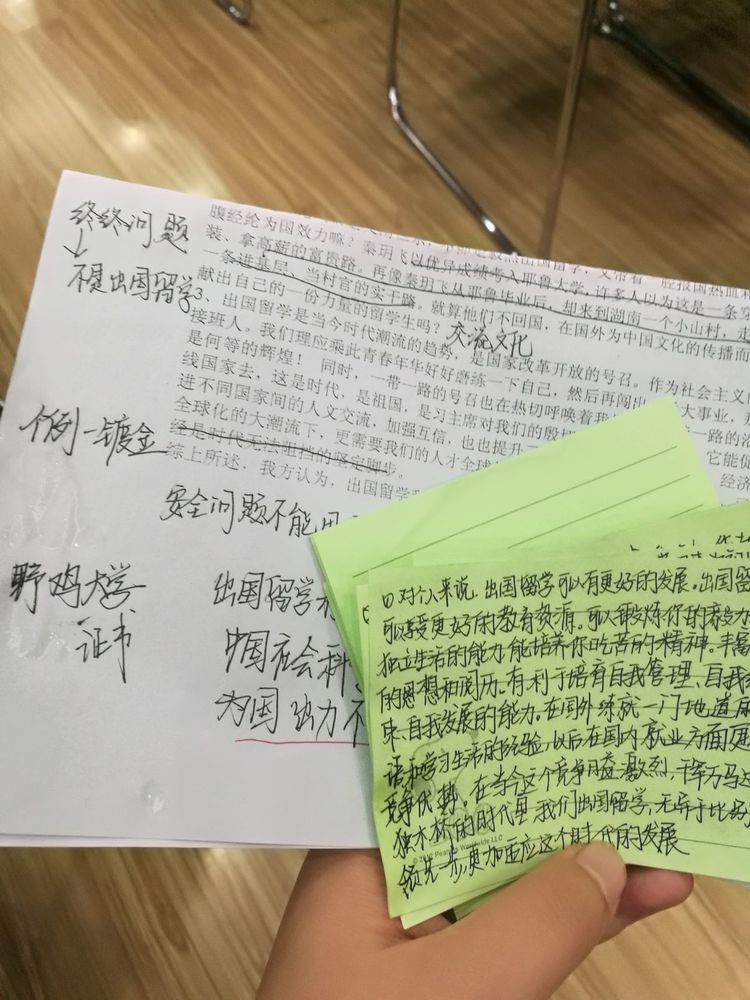 终终问题
↓
不是出国留学
个例—镀金
野鸡大学
证书
腹经纶为国效力嘛？秦玥飞以优异成绩考入耶鲁大学，许多人以为这是一条穿
装、拿高薪的富贵路。再像秦玥飞从耶鲁毕业后，却来到湖南一个小山村，走
一条进基层、当村官的实干路。就算他们不回国，在国外为中国文化的传播而
献出自己的一份力量的留学生吗？
交流文化
3、出国留学是当今时代潮流的趋势，是国家改革开放的号召。作为社会主义
接班人。我们理应乘此青春年华好好磨练一下自己，然后再闯出
大事业，那
是何等的辉煌！同时，一带一路的号召也在热切呼唤着我
一路的沿
线国家去，这是时代，是祖国，是习主席对我们的殷切
它能促
进不同国家间的人文交流，加强互信，也也提升
经济
全球化的大潮流下，更需要我们的人才全球
经是时代无法阻挡的坚定脚步。
综上所述，我方认为，出国留学
安全问题不能用
出国留学
中国社会科
为国 效力不
①对个人来说，出国留学可以有更好的发展。出国留
可以享受更好的教育资源。可以锻炼你的
独立生活的能力能培养你吃苦的精神。丰富
的思想和阅历。有利于培育自我管理、自我
束、自我发展的能力。在国外练就一门地道
语和学习生活的经验，以后在国内就业方面更
竞争优势。在当今这个竞争日益激烈，千军万马过
独木桥的时代里，我们出国留学，无异于比
领先一步，更加适应这个时代的发展
Peanuts Worldwide LLC